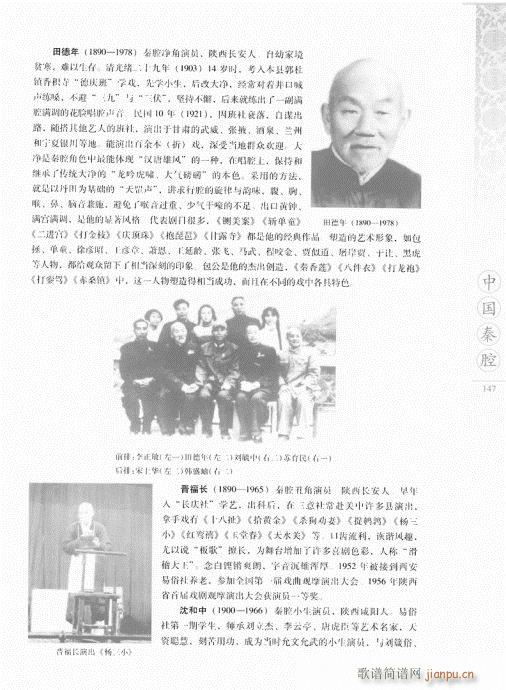 田德年（1890—1978）秦腔净角演员，陕西长安人。自幼家境
贫寒，难以生存。清光绪二十九年（1903）14岁时，考入本县郭杜
镇香积寺“德庆班”学戏，先学小生，后改大净，经常对着井口喊
声练嗓，不避“三九”与“三伏”，坚持不懈，后来就练出了一副满
腔满调的花脸唱腔声音。民国10年（1921），因班社衰落，自谋出
路，随搭其他艺人的班社，演出于甘肃的武威、张掖、酒泉、兰州
和宁夏银川等地。能演出百余本（折）戏，深受当地群众欢迎。大
净是秦腔角色中最能体现“汉唐雄风”的一种，在唱腔上，保持和
继承了传统大净的“龙吟虎啸、大气磅礴”的本色。采用的方法，
就是以丹田为基础的“天罡声”，讲求行腔的旋律与韵味，腹、胸、
喉、鼻、脑音兼施，避免了呕音过重、少气干嚎的不足。出口黄钟、
满宫满调，是他的显著风格。代表剧目很多，《铡美案》《斩单童》
《二进宫》《打金枝》《庆顶珠》《抱琵琶》《甘露寺》都是他的经典作品。塑造的艺术形象，如包
拯、单童、徐彦昭、王彦章、萧恩、王延龄、张飞、马武、程咬金、贾似道、屠岸贾、于让、黑虎
等人物，都给观众留下了相当深刻的印象。包公是他的杰出创造，《秦香莲》《八件衣》《打龙袍》
《打銮驾》《赤桑镇》中，这一人物塑造得相当成功，而且在不同的戏中各具特色。
田德年（1890—1978）
中国秦腔
147
前排：李正敏（左一）田德年（左二）刘毓中（右二）苏育民（右一）
后排：宋上华（左二）韩盛岫（右二）
晋福长（1890—1965）秦腔丑角演员。陕西长安人。早年
入“长庆社”学艺，出科后，在三意社常赴关中许多县演出，
拿手戏有《十八扯》《拾黄金》《杀狗劝妻》《提鹌鹑》《杨三
小》《红鸾禧》《玉堂春》《天水关》等。口齿流利，诙谐风趣，
尤以说“板歌”擅长，为舞台增加了许多喜剧色彩，人称“滑
稽大王”。念白铿锵爽朗，字音沉雄浑厚。1952年被接到西安
易俗社养老，参加全国第一届戏曲观摩演出大会。1956年陕西
省首届戏剧观摩演出大会获演员一等奖。
沈和中（1900—1966）秦腔小生演员，陕西咸阳人。易俗
社第一期学生，师承刘立杰、李云亭、唐虎臣等艺术名家，天
资聪慧，刻苦用功，成为当时允文允武的小生演员，与刘箴俗、
晋福长演出《杨三小》
歌谱简谱网 jianpu.cn